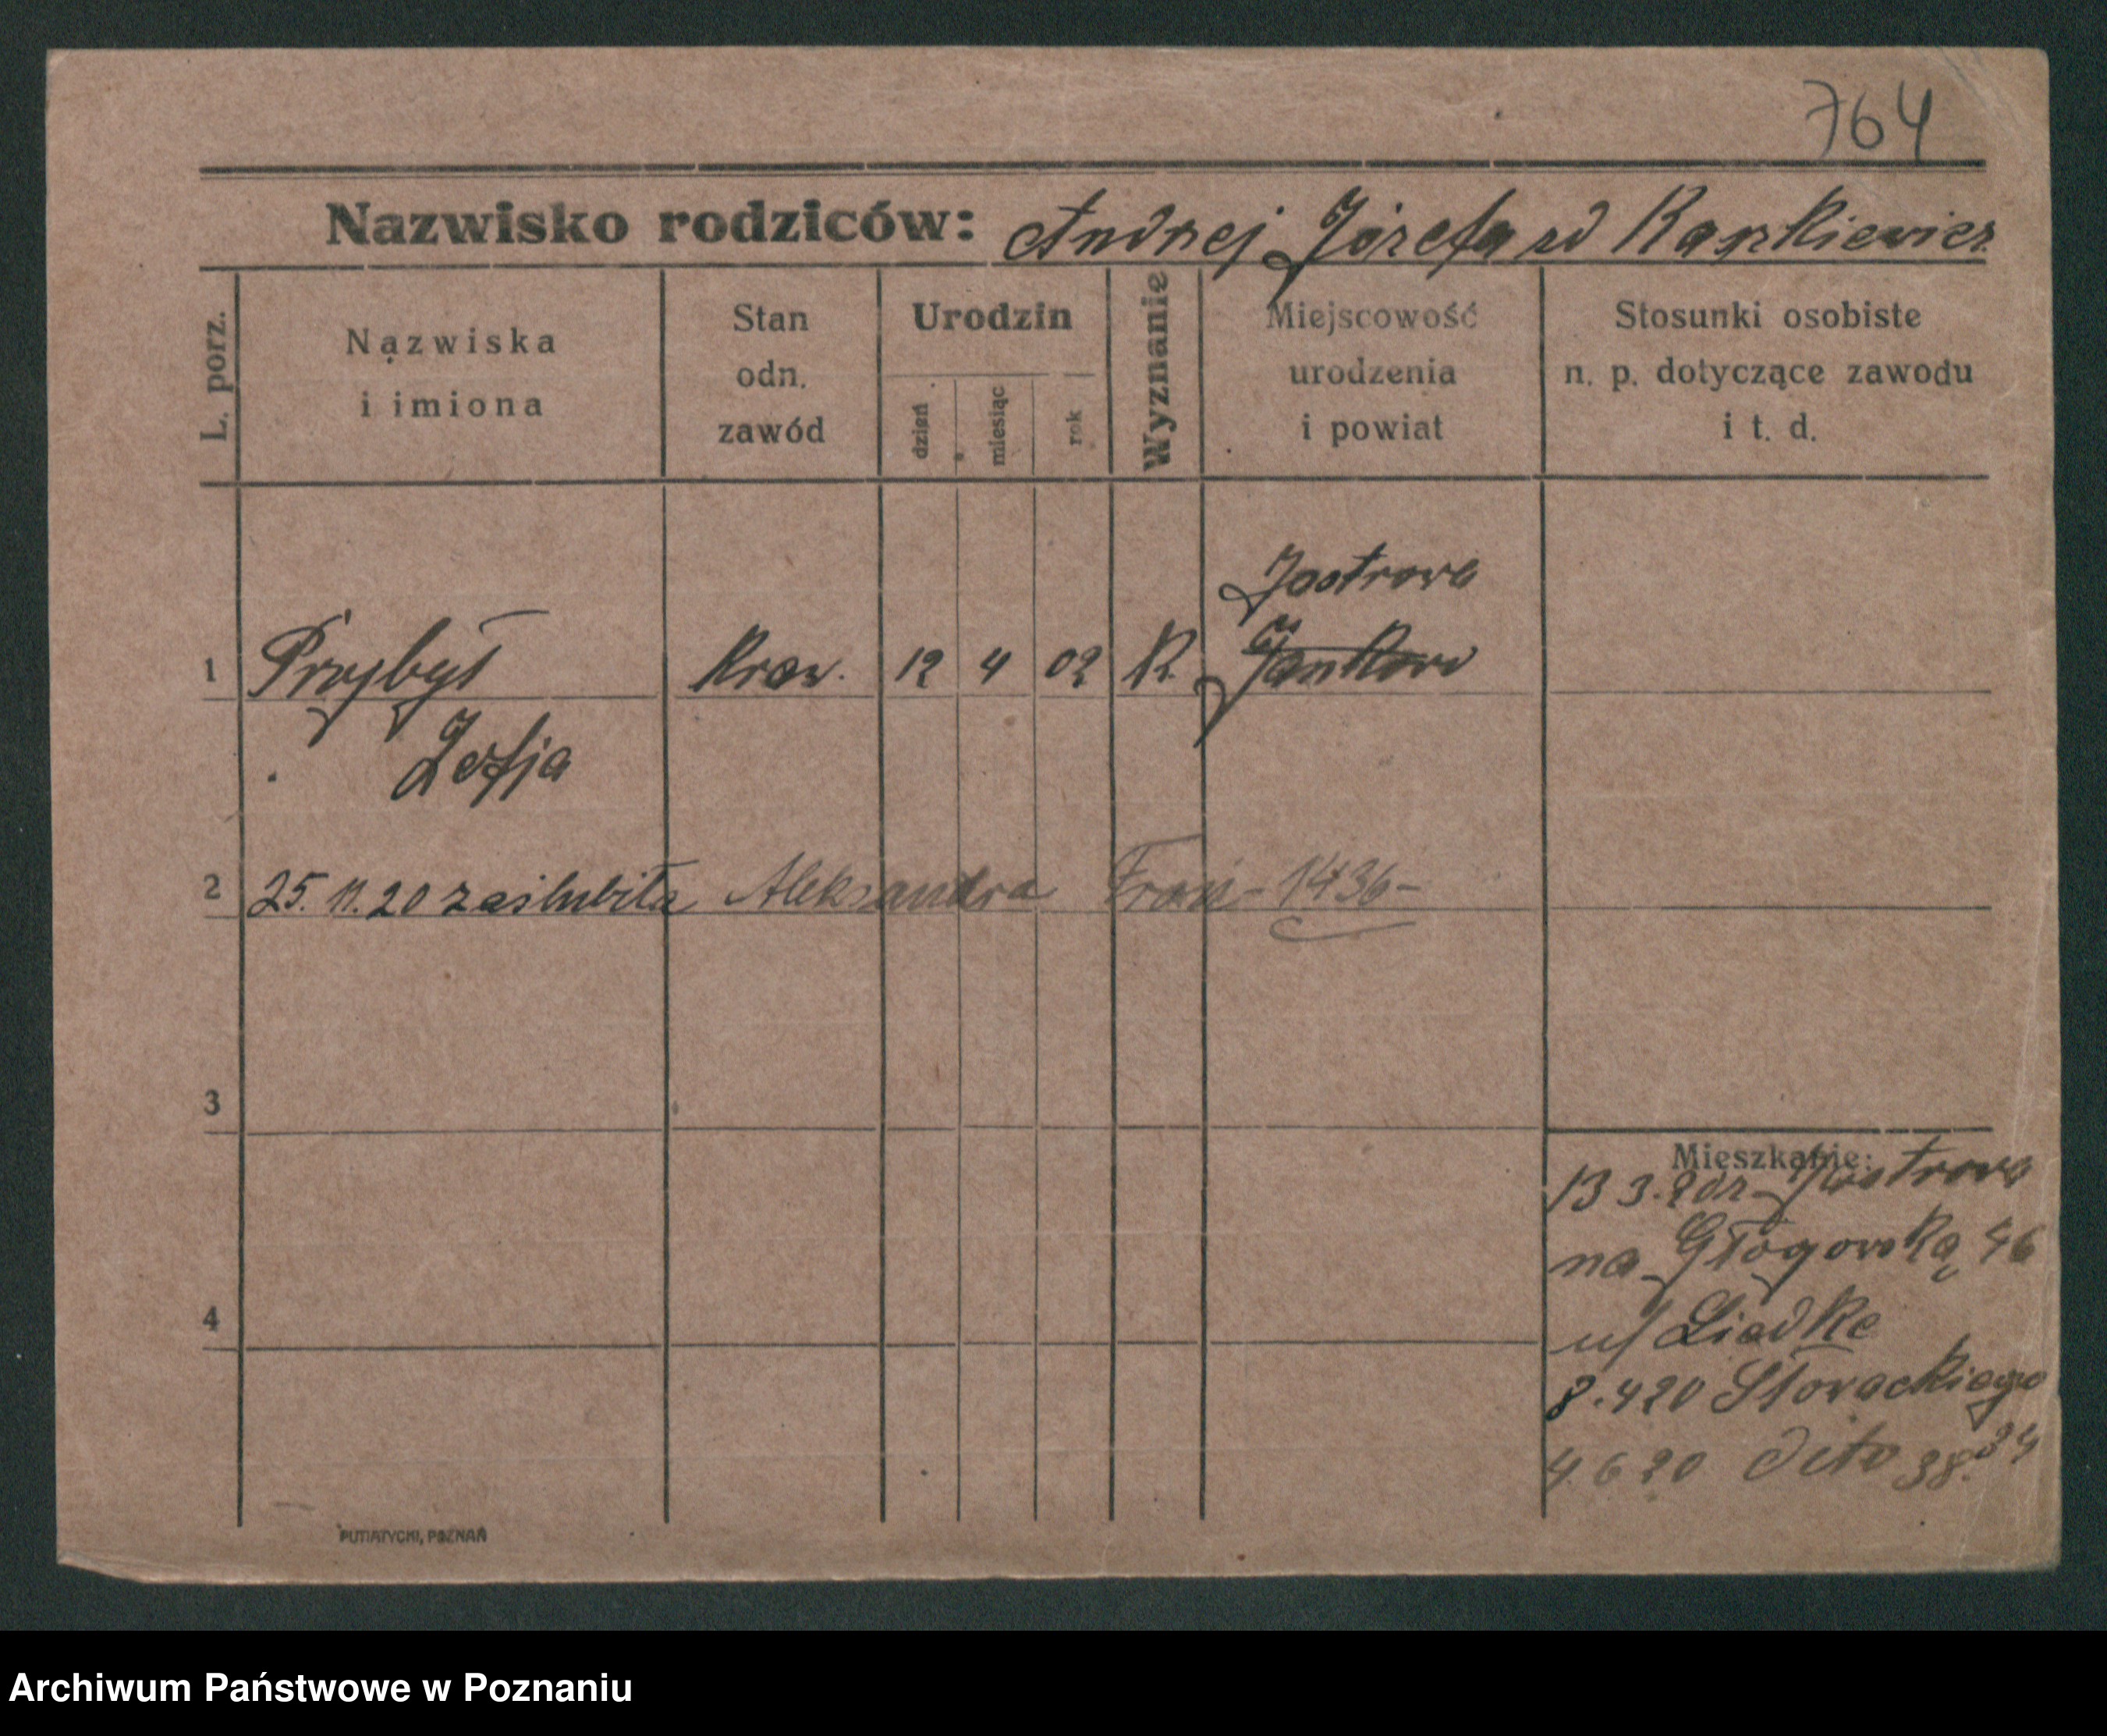 764
Nazwisko rodziców: Andrzej Józefa zd Kaszkiewicz
L. porz.
Nazwiska
i imiona
Stan
odn.
zawód
Urodzin
dzień
miesiąc
rok
Wyznanie
Miejscowość
urodzenia
i powiat
Stosunki osobiste
n. p. dotyczące zawodu
i t. d.
Jastrowo
1 Przybył Kraw. 12 4 02 K. Jankowo
Zofja
2 25. 11. 20 zaślubiła Aleksandra Fran - 1436 -
3
4
Mieszkanie:
13 3. 20 z Jastrowa
na Głogowską 46
u/ Liedke
8. 4 20 Słowackiego
34
4. 6 20 dito 38.
PUTIATYCKI, POZNAŃ
Archiwum Państwowe w Poznaniu